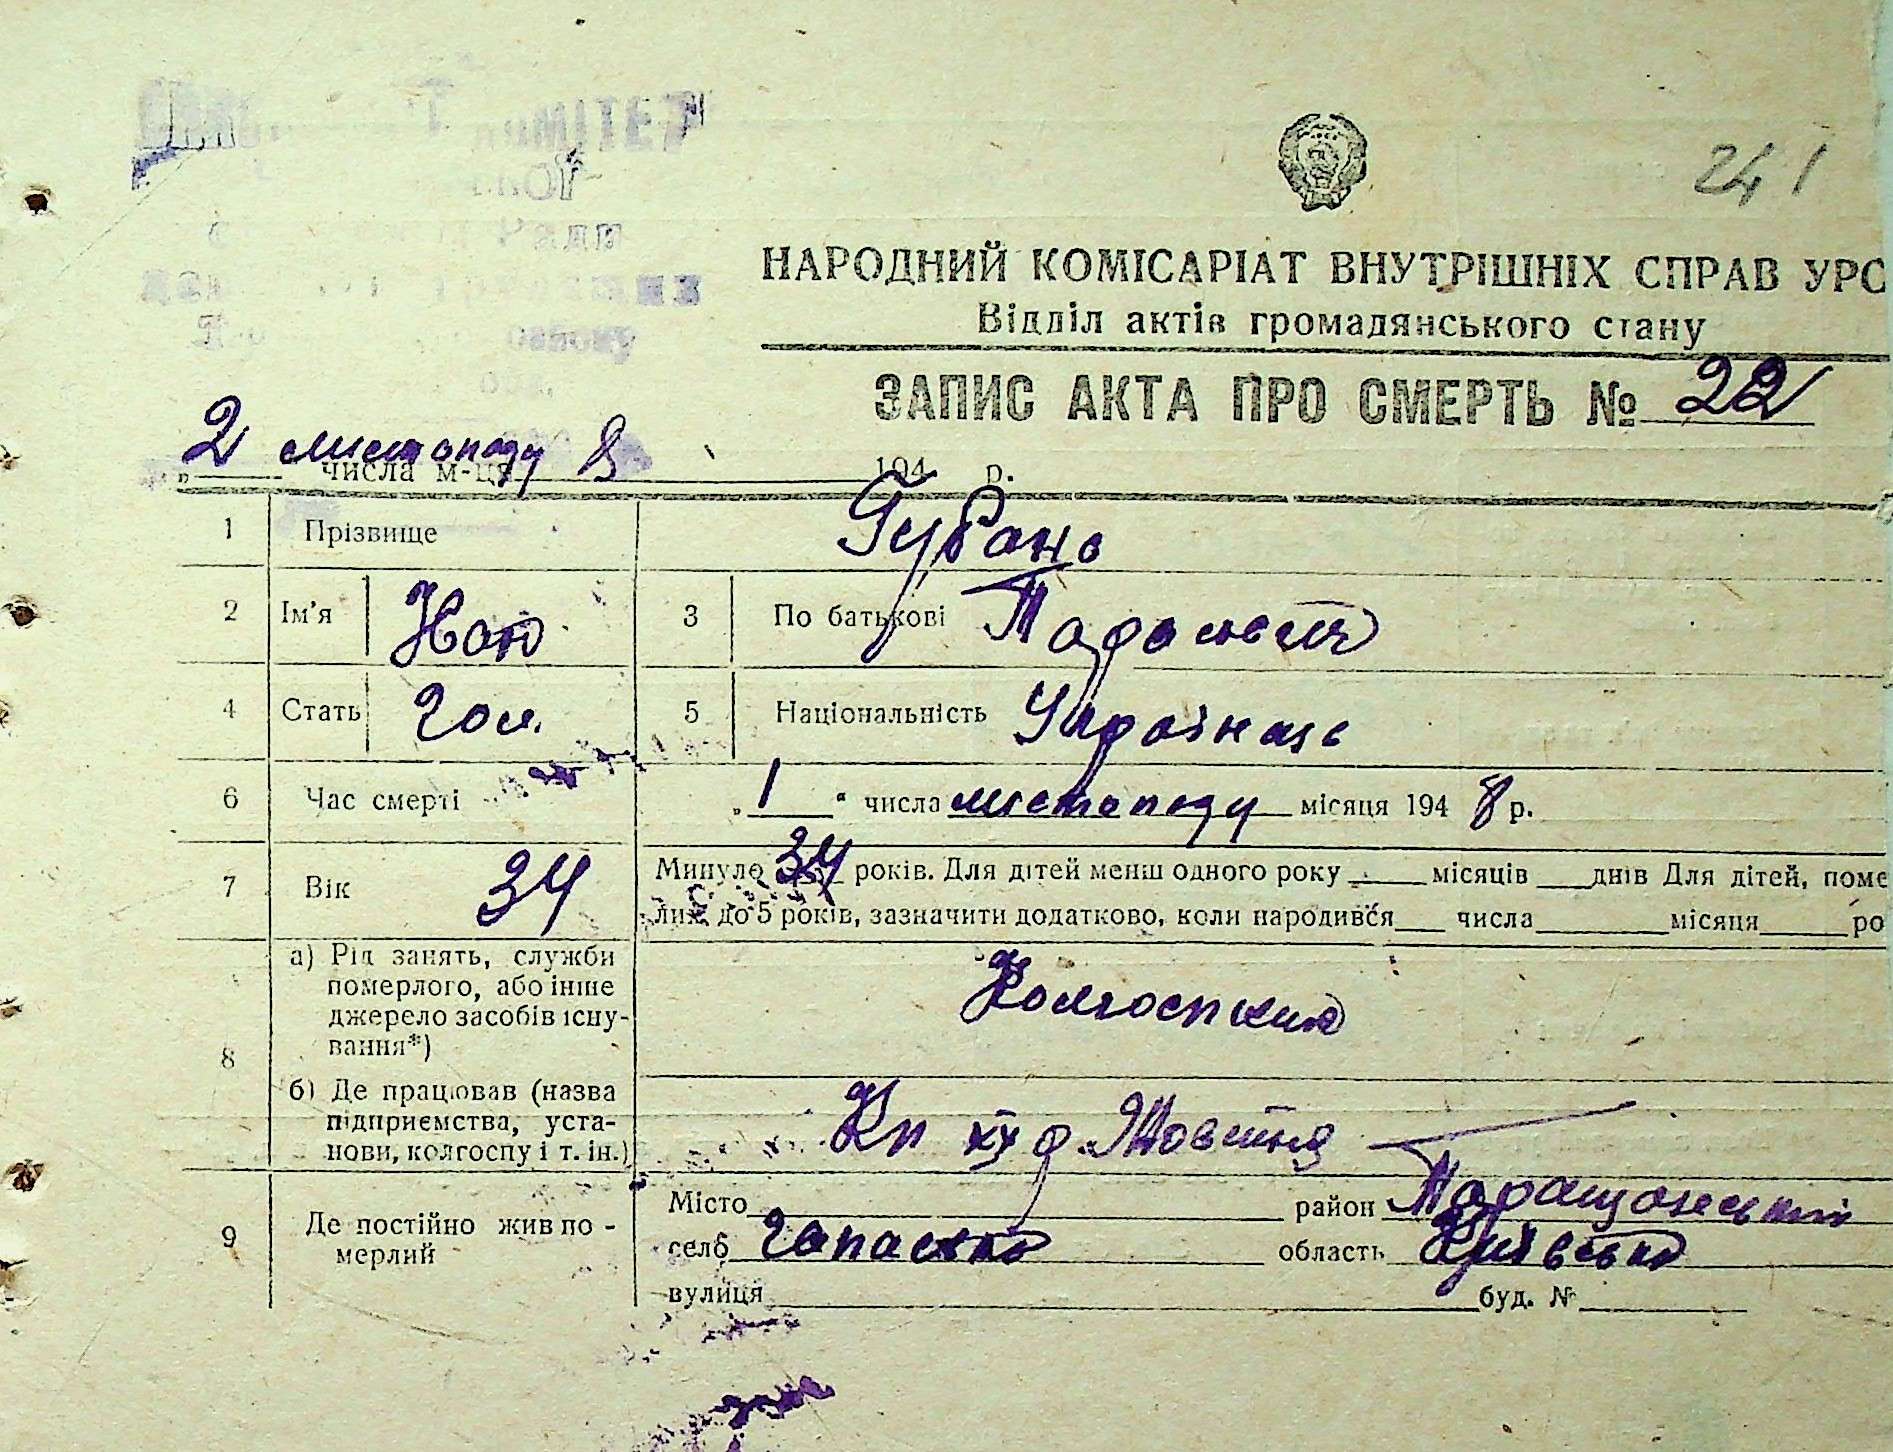 КОМІТЕТ
241
НАРОДНИЙ КОМІСАРІАТ ВНУТРІШНІХ СПРАВ УРС
Відділ актів громадянського стану
ЗАПИС АКТА ПРО СМЕРТЬ № 22
„2 числа м-ця листопаду 8 194 р.
1 Прізвище Губань
2 Ім'я 3 По батькові
4 Стать Чол. 5 Національність Українець
6 Час смерті „1“ числа листопаду місяця 1948 р.
7 Вік 34 Минуло 34 років. Для дітей менш одного року місяців днів Для дітей, поме
лих до 5 років, зазначити додатково, коли народився числа місяця ро
8 а) Рід занять, служби
померлого, або інше
джерело засобів існу-
вання*)
Колгоспник
б) Де працював (назва
підприємства, уста-
нови, колгоспу і т. ін.)
Жовтня
9 Де постійно жив по-
мерлий
Місто район Таращанський
село Чапаєвка область Київська
вулиця буд. №